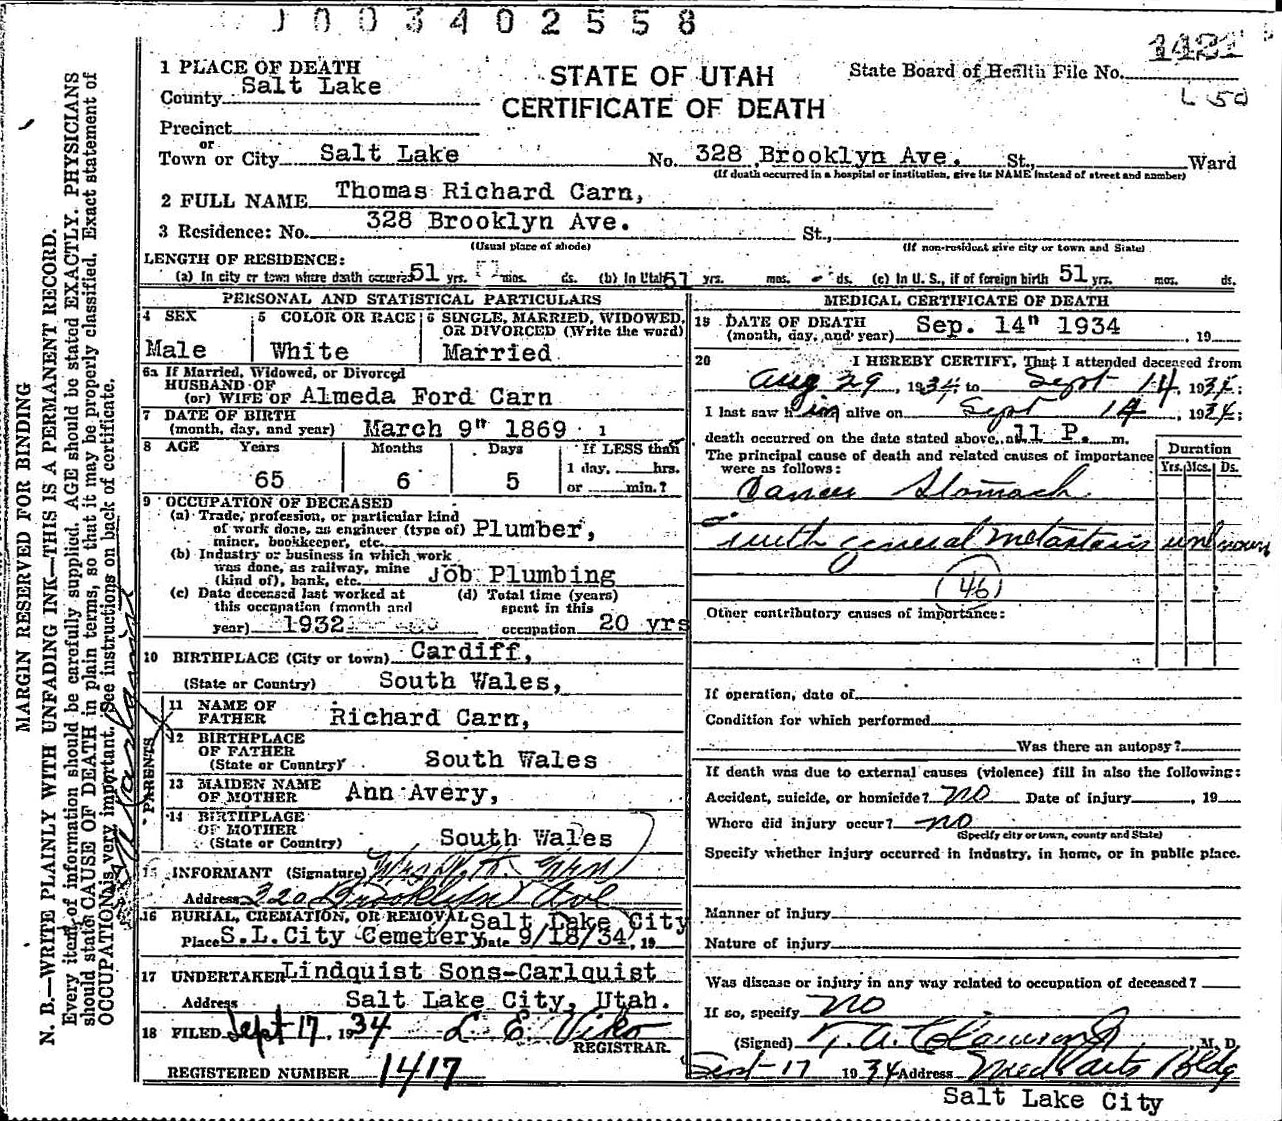 1003402558
1421
1 PLACE OF DEATH
STATE OF UTAH
State Board of Health File No.
County Salt Lake
CERTIFICATE OF DEATH
L 50
Precinct
or
Town or City Salt Lake No. 328 Brooklyn Ave. St., Ward
(If death occurred in a hospital or institution, give its NAME instead of street and number)
2 FULL NAME Thomas Richard Carn,
3 Residence: No. 328 Brooklyn Ave. St.,
(Usual place of abode) (If non-resident give city or town and State)
LENGTH OF RESIDENCE:
(a) In city or town where death occured 51 yrs. mos. ds. (b) In Utah 51 yrs. mos. - ds. (c) In U. S., if of foreign birth 51 yrs. mos. ds.
PERSONAL AND STATISTICAL PARTICULARS
4 SEX
Male
5 COLOR OR RACE
White
6 SINGLE, MARRIED, WIDOWED,
OR DIVORCED (Write the word)
Married
6a If Married, Widowed, or Divorced
HUSBAND OF
(or) WIFE OF Almeda Ford Carn
7 DATE OF BIRTH
(month, day, and year) March 9" 1869
8 AGE Years Months Days If LESS than
65 6 5 1 day, hrs.
or min.?
9 OCCUPATION OF DECEASED
(a) Trade, profession, or particular kind
of work done, as engineer (type of) Plumber,
miner, bookkeeper, etc.
(b) Industry or business in which work
was done, as railway, mine
(kind of), bank, etc. Job Plumbing
(c) Date deceased last worked at
this occupation (month and
year) 1932
(d) Total time (years)
spent in this
occupation 20 yrs
10 BIRTHPLACE (City or town) Cardiff,
(State or Country) South Wales,
PARENTS
11 NAME OF
FATHER Richard Carn,
12 BIRTHPLACE
OF FATHER
(State or Country) South Wales
13 MAIDEN NAME
OF MOTHER Ann Avery,
14 BIRTHPLACE
OF MOTHER
(State or Country) South Wales
15 INFORMANT (Signature) Mrs
Address 320 Brooklyn Ave
16 BURIAL, CREMATION, OR REMOVAL Salt Lake City
Place S.L.City Cemetery Date 9/18/34, 19
17 UNDERTAKER Lindquist Sons-Carlquist
Address Salt Lake City, Utah.
18 FILED Sept 17, 1934 L. E. Viko
REGISTRAR
REGISTERED NUMBER 1417
MEDICAL CERTIFICATE OF DEATH
19 DATE OF DEATH
(month, day, and year) Sep. 14" 1934, 19
20 I HEREBY CERTIFY, That I attended deceased from
Aug 29, 1934 to Sept 14, 1934;
I last saw him alive on Sept 14, 1934;
death occurred on the date stated above, at 11 P. m.
The principal cause of death and related causes of importance
were as follows:
Duration
Yrs. Mos. Ds.
Cancer Stomach
with general metastasis unknown
46
Other contributory causes of importance:
If operation, date of
Condition for which performed
Was there an autopsy?
If death was due to external causes (violence) fill in also the following:
Accident, suicide, or homicide? no Date of injury , 19
Where did injury occur? no
(Specify city or town, county and State)
Specify whether injury occurred in industry, in home, or in public place.
Manner of injury
Nature of injury
Was disease or injury in any way related to occupation of deceased?
If so, specify No
(Signed) T. A. Clawson Jr, M. D.
Sept 17 1934 Address Med Arts Bldg
Salt Lake City
MARGIN RESERVED FOR BINDING
N. B.—WRITE PLAINLY WITH UNFADING INK—THIS IS A PERMANENT RECORD.
Every item of information should be carefully supplied. AGE should be stated EXACTLY. PHYSICIANS
should state CAUSE OF DEATH in plain terms, so that it may be properly classified. Exact statement of
OCCUPATION is very important. See instructions on back of certificate.